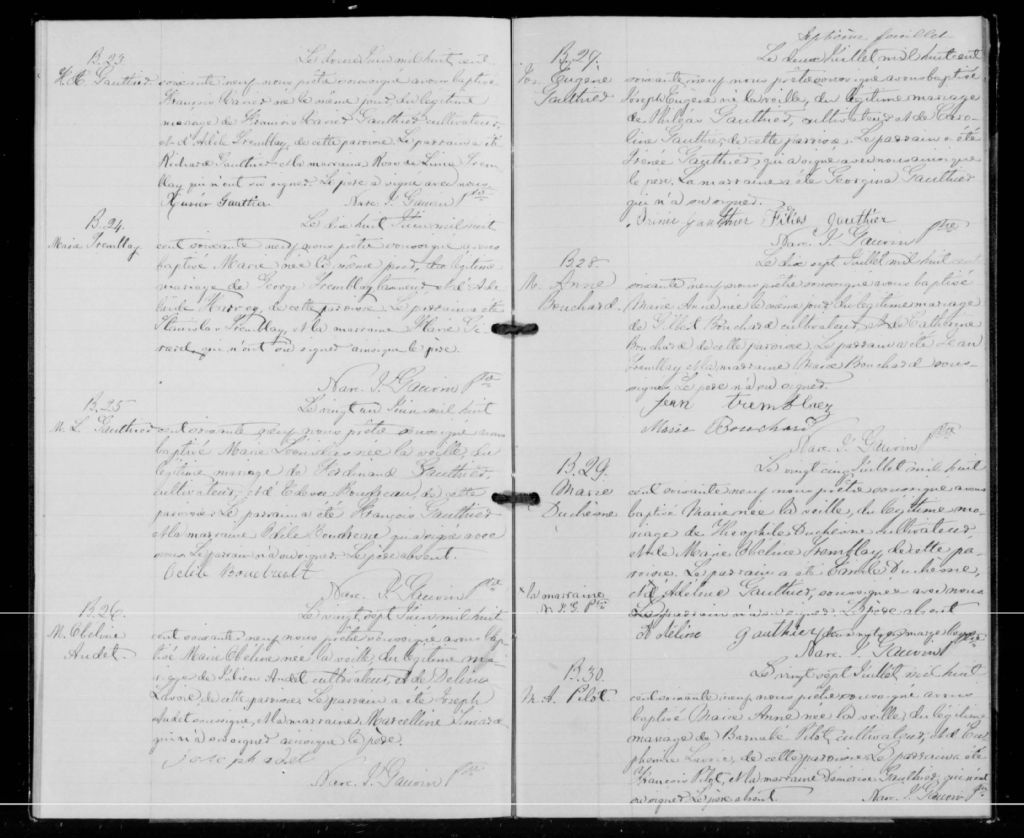 B. 23.
Le douze Juin mil huit cent
F. X. Gauthier soixante neuf nous prêtre soussigné avons baptisé
François Xavier né le même jour du légitime
mariage de François Xavier Gauthier cultivateur,
et d'Adèle Tremblay de cette paroisse. Le parrain a été
Richard Gauthier et la marraine Rose de Lima Trem
blay qui n'ont su signer. Le père a signé avec nous.
Xavier Gauthier Narc. J. Gauvin Ptre
B. 24.
Le dix huit Juin mil huit
Marie Tremblay cent soixante neuf nous prêtre soussigné avons
baptisé Marie née le même jour, du légitime
mariage de George Tremblay et d'Adé
laïde de cette paroisse. Le parrain a été
Stanislas Tremblay, et la marraine Marie Gi
rard qui n'ont su signer ainsi que le père.
Narc. J. Gauvin Ptre
B. 25
Le vingt un Juin mil huit
M. L. Gauthier cent soixante neuf nous prêtre soussigné avons
baptisé Marie Louise née la veille, du
légitime mariage de Ferdinand Gauthier,
cultivateur, et d' de cette
paroisse. Le parrain a été François Gauthier
et la marraine Odèle Boudreau qui a signé avec
nous. Le parrain n'a su signer. Le père absent.
Narc. J. Gauvin Ptre
B. 26.
Le vingt sept Juin mil huit
M. Obéline
Audet.
cent soixante neuf nous prêtre soussigné avons bap
tisé Marie Obéline née la veille, du légitime ma
riage de Julien Audet cultivateur, et de Délina
Lavoie de cette paroisse. Le parrain a été Joseph
Audet soussigné, et la marraine Marcelline Simard
qui n'a su signer ainsi que le père.
Josepk adet
Narc. J. Gauvin Ptre
Septième feuillet
B. 27.
Le deux Juillet mil huit cent
Jos. Eugène
Gauthier
soixante neuf nous prêtre soussigné avons baptisé
Joseph Eugène né la veille, du légitime mariage
de Philias Gauthier, cultivateur, et de Caro
line Gauthier, de cette paroisse. Le parrain a été
Irénée Gauthier qui a signé avec nous ainsi que
le père. La marraine a été Georgina Gauthier
qui n'a su signer.
Irinée gauthier Filias gauthier
Narc. J. Gauvin Ptre
B. 28.
Le dix sept Juillet mil huit cent
M. Anne
Bouchard.
soixante neuf nous prêtre soussigné avons baptisé
Marie Anne née le même jour du légitime mariage
de Gilbert Bouchard cultivateur, et de Catherine
Bouchard de cette paroisse. Le parrain a été Jean
Tremblay et la marraine Marie Bouchard sous-
signés. Le père n'a su signer.
Jean tremblaez
Marie Bouchard
Narc. J. Gauvin Ptre
B. 29.
Le vingt cinq Juillet mil huit
Marie
Duchesne
cent soixante neuf nous prêtre soussigné avons
baptisé Marie née la veille, du légitime ma-
riage de Théophile Duchesne cultivateur,
et de Marie Obéline Tremblay de cette pa-
roisse. Le parrain a été Duchesne,
et Adéline Gauthier, soussignée avec nous.
la marraine
N. J. G. Ptre
Le parrain n'a su signer. Le père absent
Adéline gauthier
Narc. J. Gauvin Ptre
B. 30.
Le vingt sept Juillet mil huit
M. A. Pilot. cent soixante neuf nous prêtre soussigné avons
baptisé Marie Anne née la veille, du légitime
mariage de Barnabé Pilot, cultivateur, et d'Eu
phémie Lavoie, de cette paroisse. Le parrain a été
François Pilot, et la marraine Gauthier, qui n'ont
su signer. Le père absent. Narc. J. Gauvin Ptre